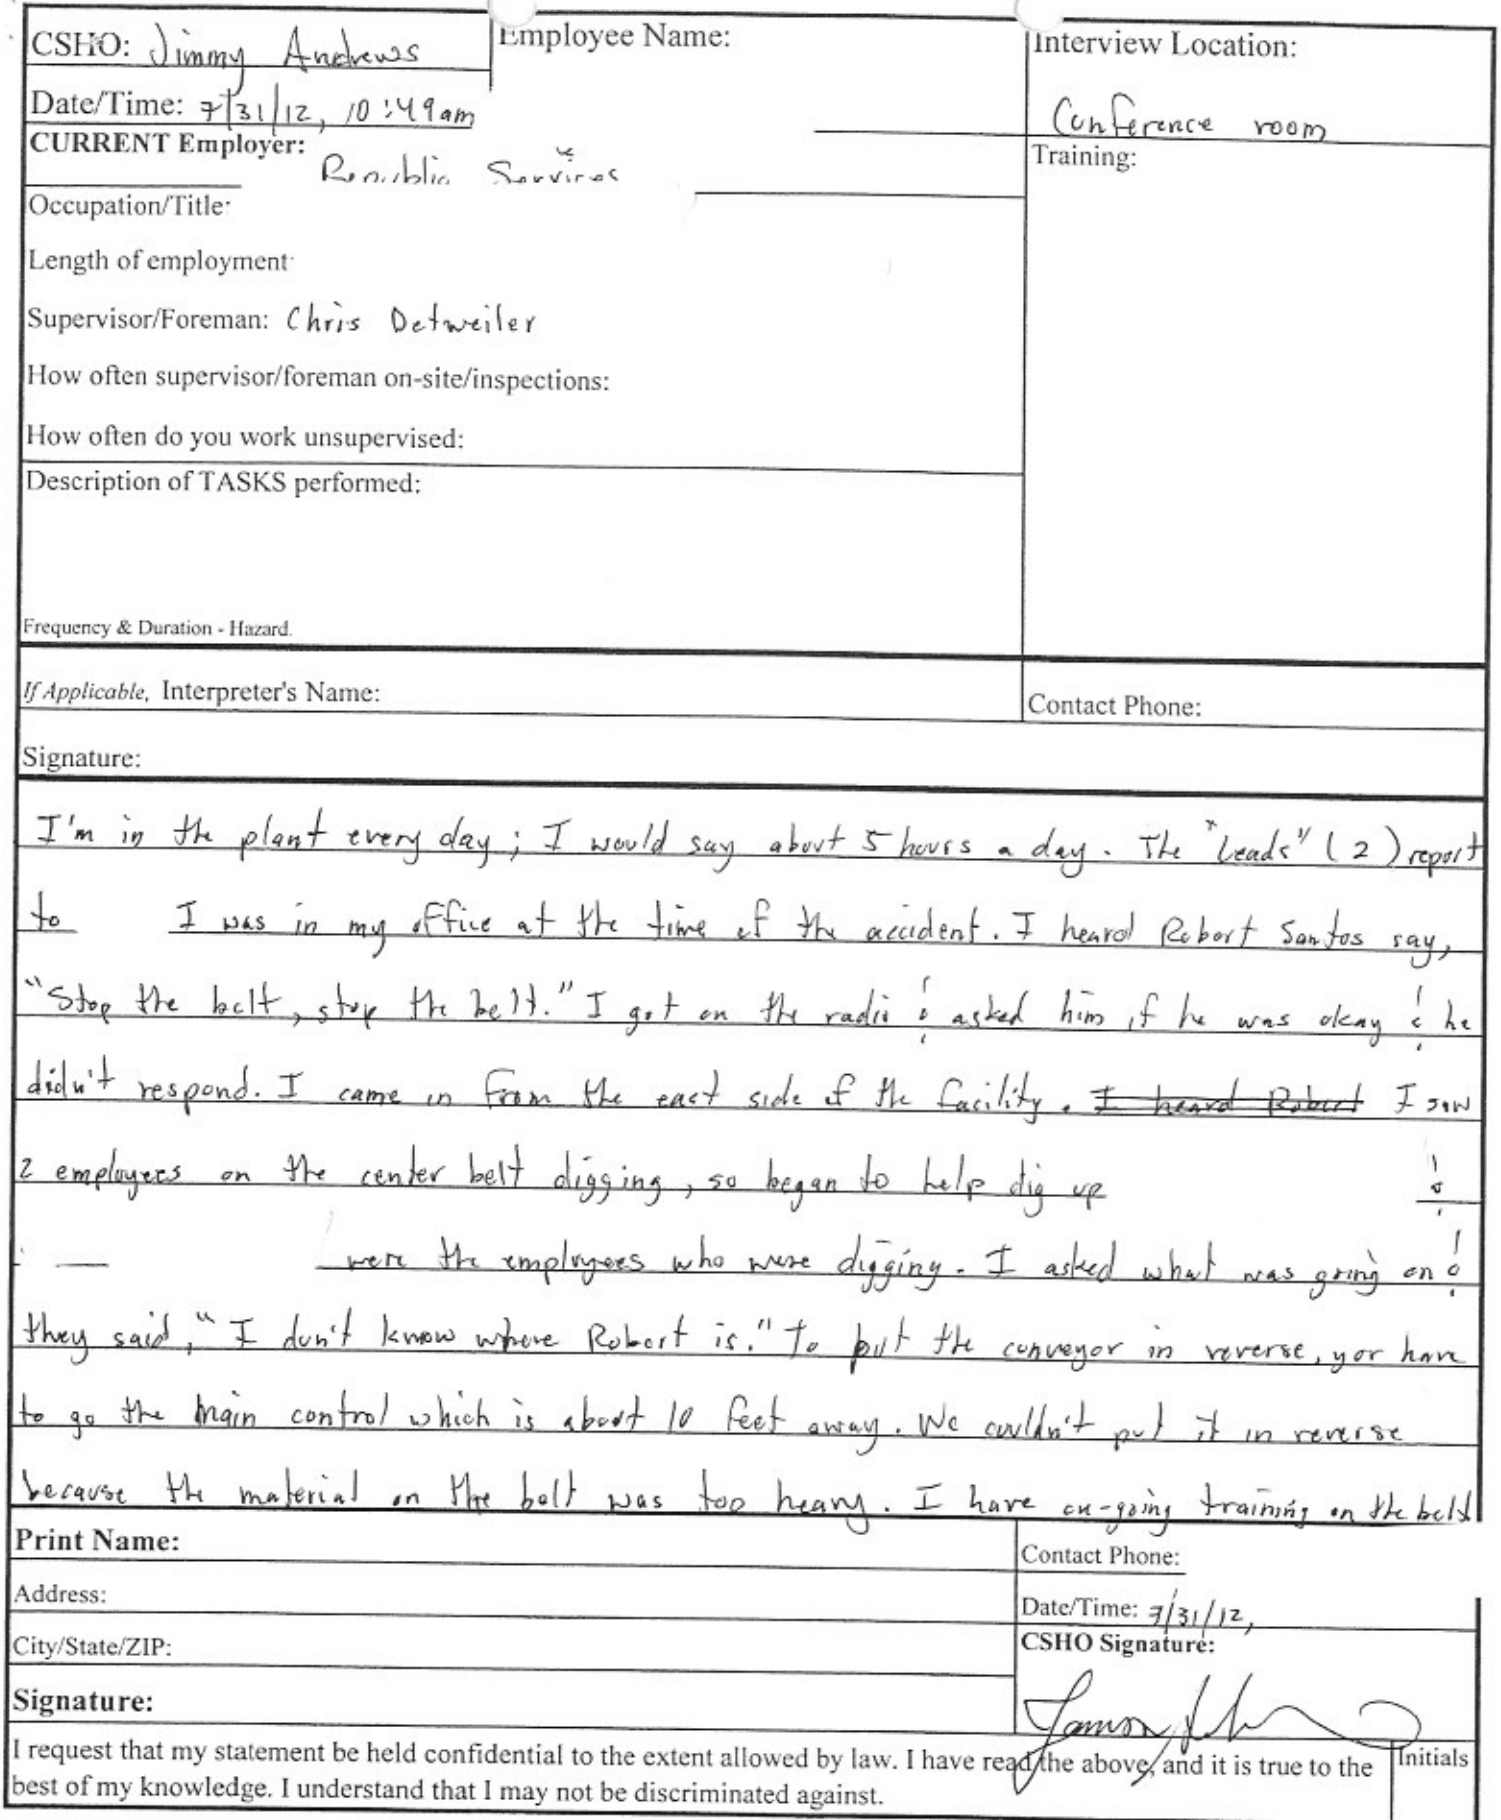 CSHO: Jimmy Andrews
Employee Name:
Interview Location:
Date/Time: 7/31/12, 10:49am
Conference room
CURRENT Employer: Republic Services
Training:
Occupation/Title:
Length of employment
Supervisor/Foreman: Chris Detweiler
How often supervisor/foreman on-site/inspections:
How often do you work unsupervised:
Description of TASKS performed:
Frequency & Duration - Hazard.
If Applicable, Interpreter's Name:
Contact Phone:
Signature:
I'm in the plant every day; I would say about 5 hours a day. The "Leads" (2) report
to I was in my office at the time of the accident. I heard Robert Santos say,
"Stop the belt, stop the belt." I got on the radio & asked him if he was okay & he
didn't respond. I came in from the east side of the facility. I heard Robert I saw
2 employees on the center belt digging, so began to help dig up &
were the employees who were digging. I asked what was going on &
they said, "I don't know where Robert is." To put the conveyor in reverse, yor have
to go the main control which is about 10 feet away. We couldn't put it in reverse
because the material on the belt was too heavy. I have on-going training on the belt
Print Name:
Contact Phone:
Address:
Date/Time: 7/31/12,
City/State/ZIP:
CSHO Signature:
Signature:
I request that my statement be held confidential to the extent allowed by law. I have read the above, and it is true to the
best of my knowledge. I understand that I may not be discriminated against.
Initials